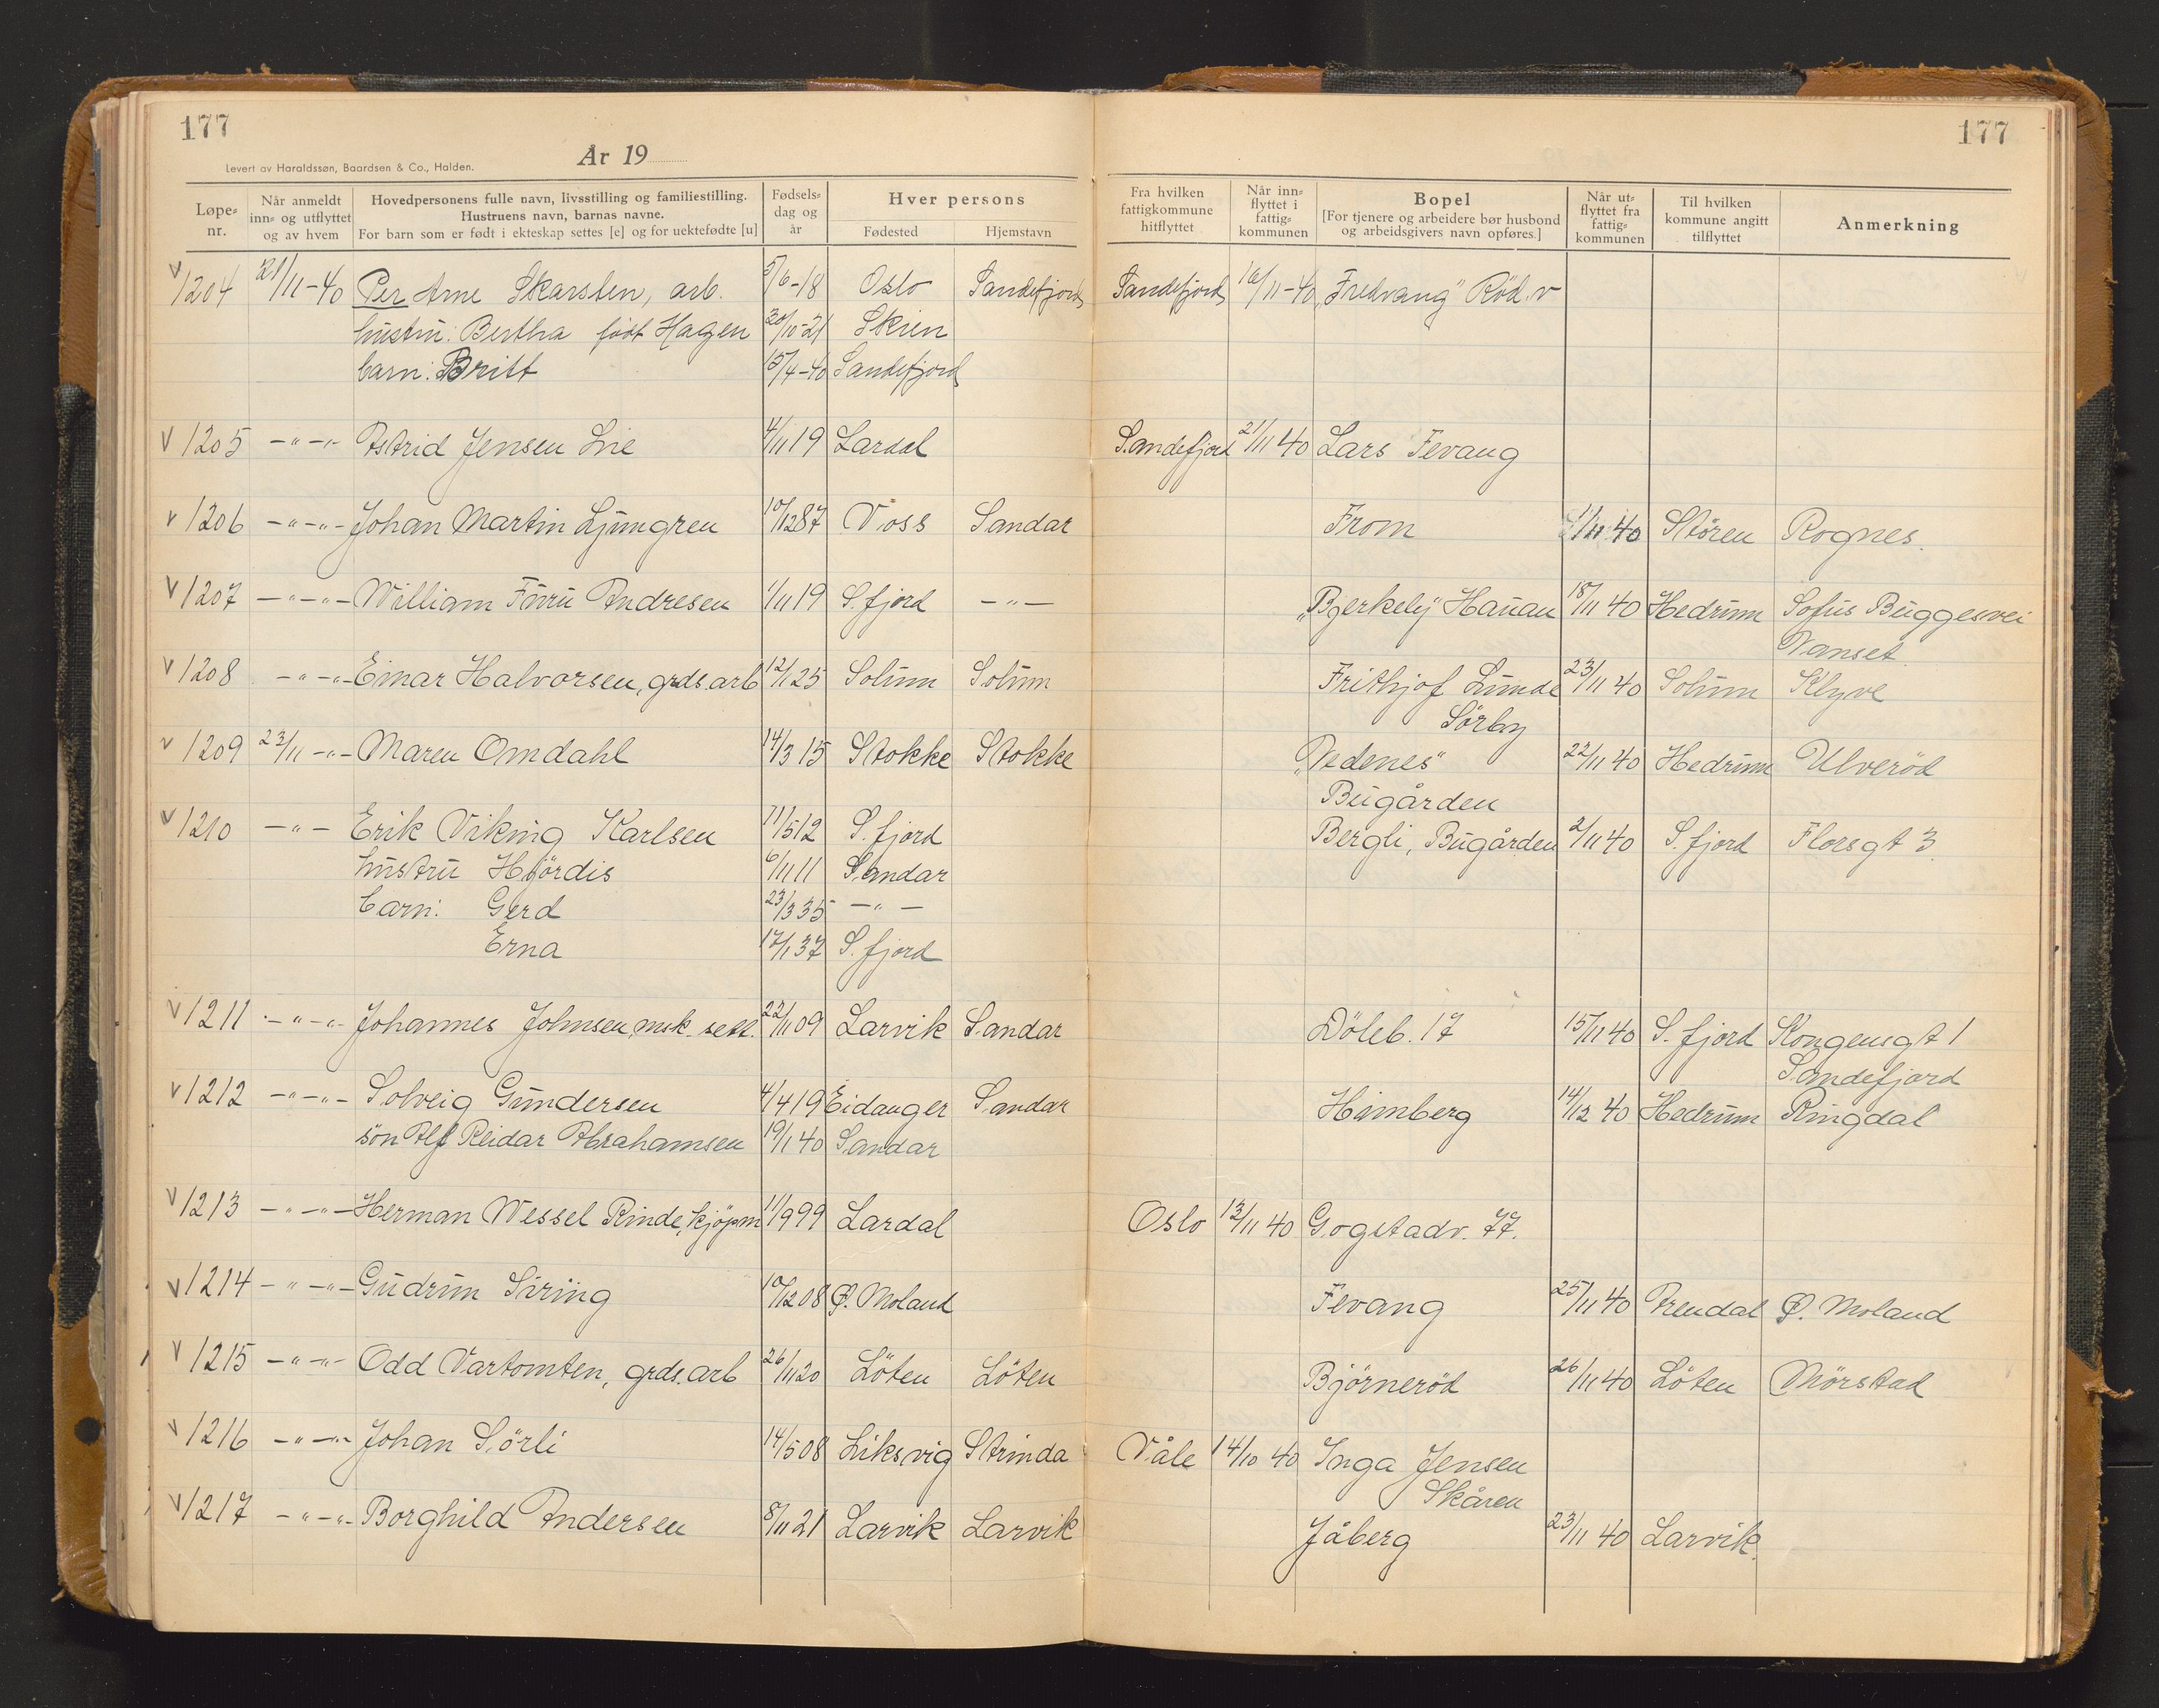 177
177
År 19
Levert av Haraldssøn, Baardsen & Co., Halden.
Løpe-nr. Når anmeldt inn- og utflyttet og av hvem Hovedpersonens fulle navn, livsstilling og familiestilling. Hustruens navn, barnas navne. For barn som er født i ekteskap settes [e] og for uektefødte [u] Fødsels-dag og år Hver persons Fødested Hjemstavn Fra hvilken fattigkommune hitflyttet Når inn-flyttet i fattig-kommunen Bopel [For tjenere og arbeidere bør husbond og arbeidsgivers navn opføres.] Når ut-flyttet fra fattig-kommunen Til hvilken kommune angitt tilflyttet Anmerkning
v 1204 21/11-40 Per Arne Skarsten, arb. 5/6-18 Oslo Sandefjord Sandefjord 16/11-40 "Fredvang" Röd.v
hustru: Bertha født Hagen 30/10-21 Skien
barn: Britt 15/4-40 Sandefjord
v 1205 -"-"- Astrid Jensen Lie 4/11 19 Lardal Sandefjord 21/11 40 Lars Fevang
v 1206 -"-"- Johan Martin Ljungren 10/12 87 Voss Sandar From 21/11 40 Støren Rognes.
v 1207 -"-"- William Furu Andresen 1/11 19 S.fjord -"- "Bjerkely" Hauan 18/11 40 Hedrum Sofus Buggesvei
Nanset
v 1208 -"-"- Einar Halvorsen, grds.arb 12/1 25 Solum Solum Frithjof Lunde 23/11 40 Solum Klyve
Sörby
v 1209 23/11 -"- Maren Omdahl 14/3 15 Stokke Stokke "Nedenes" 22/11 40 Hedrum Ulveröd
Bugården
v 1210 -"- Erik Viking Karlsen 11/5 12 S.fjord Bergli, Bugården 2/11 40 S.fjord Florsgt 3.
hustru Hjördis 6/11 11 Sandar
barn: Gerd 23/3 35 -"-
Erna 17/1 37 S.fjord
v 1211 -"-"- Johannes Johnsen, msk. sett. 22/11 09 Larvik Sandar Döleb. 17 15/11 40 S.fjord Kongensgt 1
Sandefjord
v 1212 -"-"- Solveig Gundersen 4/4 19 Eidanger Sandar Himberg 14/12 40 Hedrum Ringdal
sön Alf Reidar Abrahamsen 19/1 40 Sandar
v 1213 -"-"- Herman Wessel Rinde, kjöpm 11/9 99 Lardal Oslo 13/11 40 Gogstadv. 77.
v 1214 -"-"- Gudrun Siring 10/12 08 Ø. Moland Fevang 25/11 40 Arendal Ø. Moland
v 1215 -"-"- Odd Vartomten, grds.arb 26/11 20 Löten Löten Björneröd 26/11 40 Löten Mörstad
v 1216 -"-"- Johan Sörli 14/5 08 Liksvig Strinda Våle 14/10 40 Inga Jensen
Skåren
v 1217 -"-"- Borghild Andersen 8/11 21 Larvik Larvik Jåberg 23/11 40 Larvik.